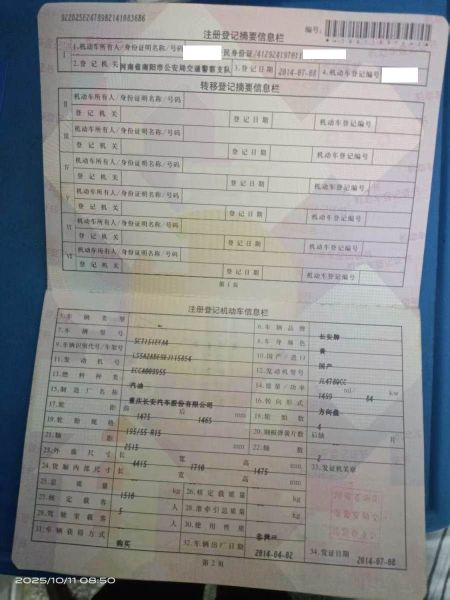 注册登记摘要信息栏
编号:
I
1.机动车所有人/身份证明名称/号码
民身份证/
2.登记机关
河南省南阳市公安局交通警察支队
3.登记日期
2014-07-08
4.机动车登记编号
转移登记摘要信息栏
II
机动车所有人/身份证明名称/号码
登记机关
登记日期
机动车登记编号
III
机动车所有人/身份证明名称/号码
登记机关
登记日期
机动车登记编号
IV
机动车所有人/身份证明名称/号码
登记机关
登记日期
机动车登记编号
V
机动车所有人/身份证明名称/号码
登记机关
登记日期
机动车登记编号
VI
机动车所有人/身份证明名称/号码
登记机关
登记日期
机动车登记编号
VII
机动车所有人/身份证明名称/号码
登记机关
登记日期
机动车登记编号
第1页
注册登记机动车信息栏
5.车辆类型
6.车辆品牌
长安牌
7.车辆型号
8.车身颜色
黄
9.车辆识别代号/车架号
10.国产/进口
国产
11.发动机号
12.发动机型号
13.燃料种类
汽油
14.排量/功率
ml
84
kw
15.制造厂名称
重庆长安汽车股份有限公司
16.转向形式
方向盘
17.轮距
前
1475
后
1465
mm
18.轮胎数
4
19.轮胎规格
195/55 R15
20.钢板弹簧片数
后轴
片
21.轴距
2515
mm
22.轴数
2
23.外廓尺寸
长
4415
宽
1710
高
1475
mm
33.发证机关章
24.货厢内部尺寸
长
宽
高
mm
25.总质量
1510
kg
26.核定载质量
kg
27.核定载客
5
人
28.准牵引总质量
kg
29.驾驶室载客
人
30.使用性质
31.车辆获得方式
购买
32.车辆出厂日期
2014-04-02
34.发证日期
2014-07-08
第2页
2025/10/11 08:50